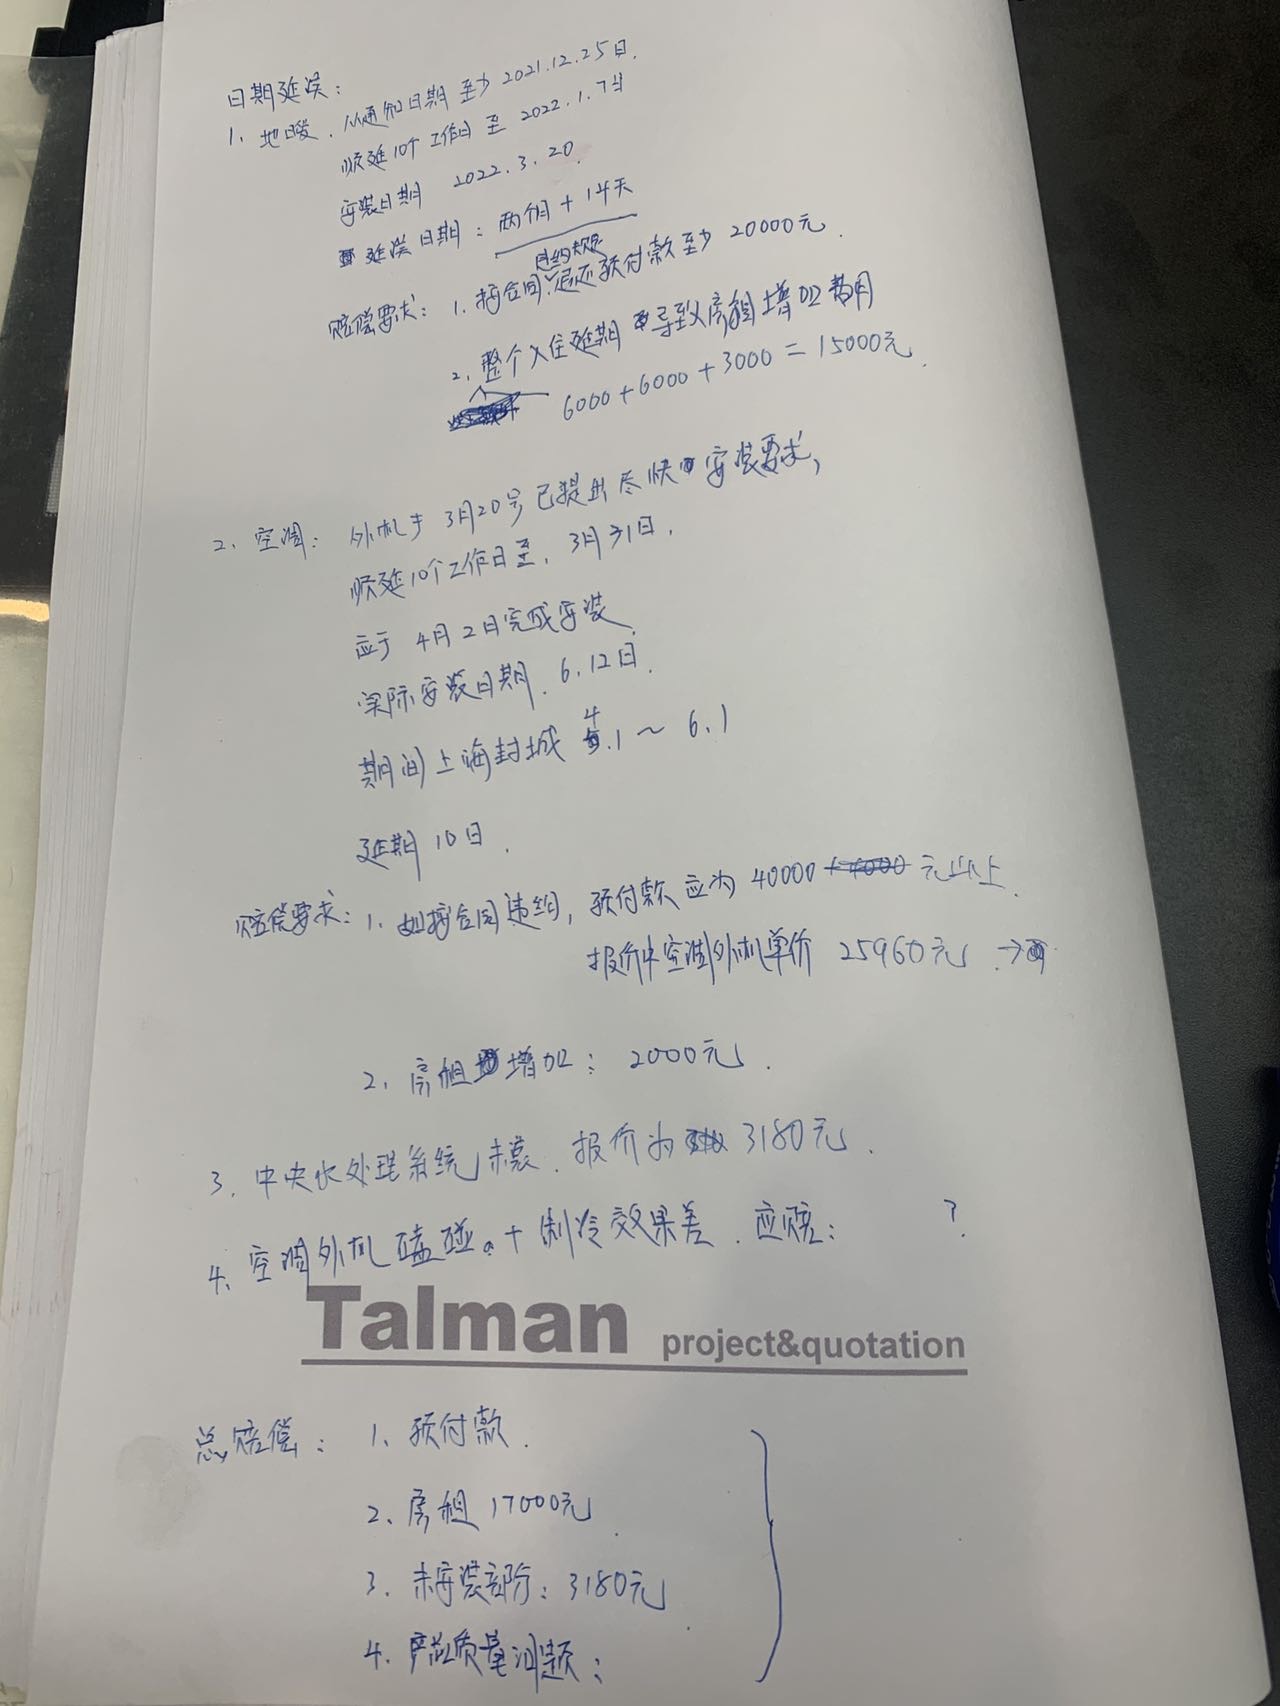 日期延误：
1、地暖．从通知日期至少 2021.12.25日．
顺延10个工作日至 2022.1.7日
安装日期 2022.3.20．
延误日期：两个月+14天
违约规定
赔偿要求：1、按合同退还预付款至少 20000元．
2、整个入住延期导致房租增加费用
6000+6000+3000=15000元．
2、空调：外机于3月20号已提出尽快安装要求，
顺延10个工作日至．3月31日．
应于4月2日完成安装
实际安装日期．6.12日．
期间上海封城 4.1～6.1
延期10日．
赔偿要求：1、如按合同违约，预付款应为40000元以上．
报价中空调外机单价 25960元．→
2、房租增加：2000元．
3、中央水处理系统未装．报价为 3180元．
4、空调外机磕碰。+制冷效果差．应赔：？
Talman project&quotation
总赔偿：1、预付款．
2、房租17000元．
3、未安装部分：3180元
4、产品质量问题：